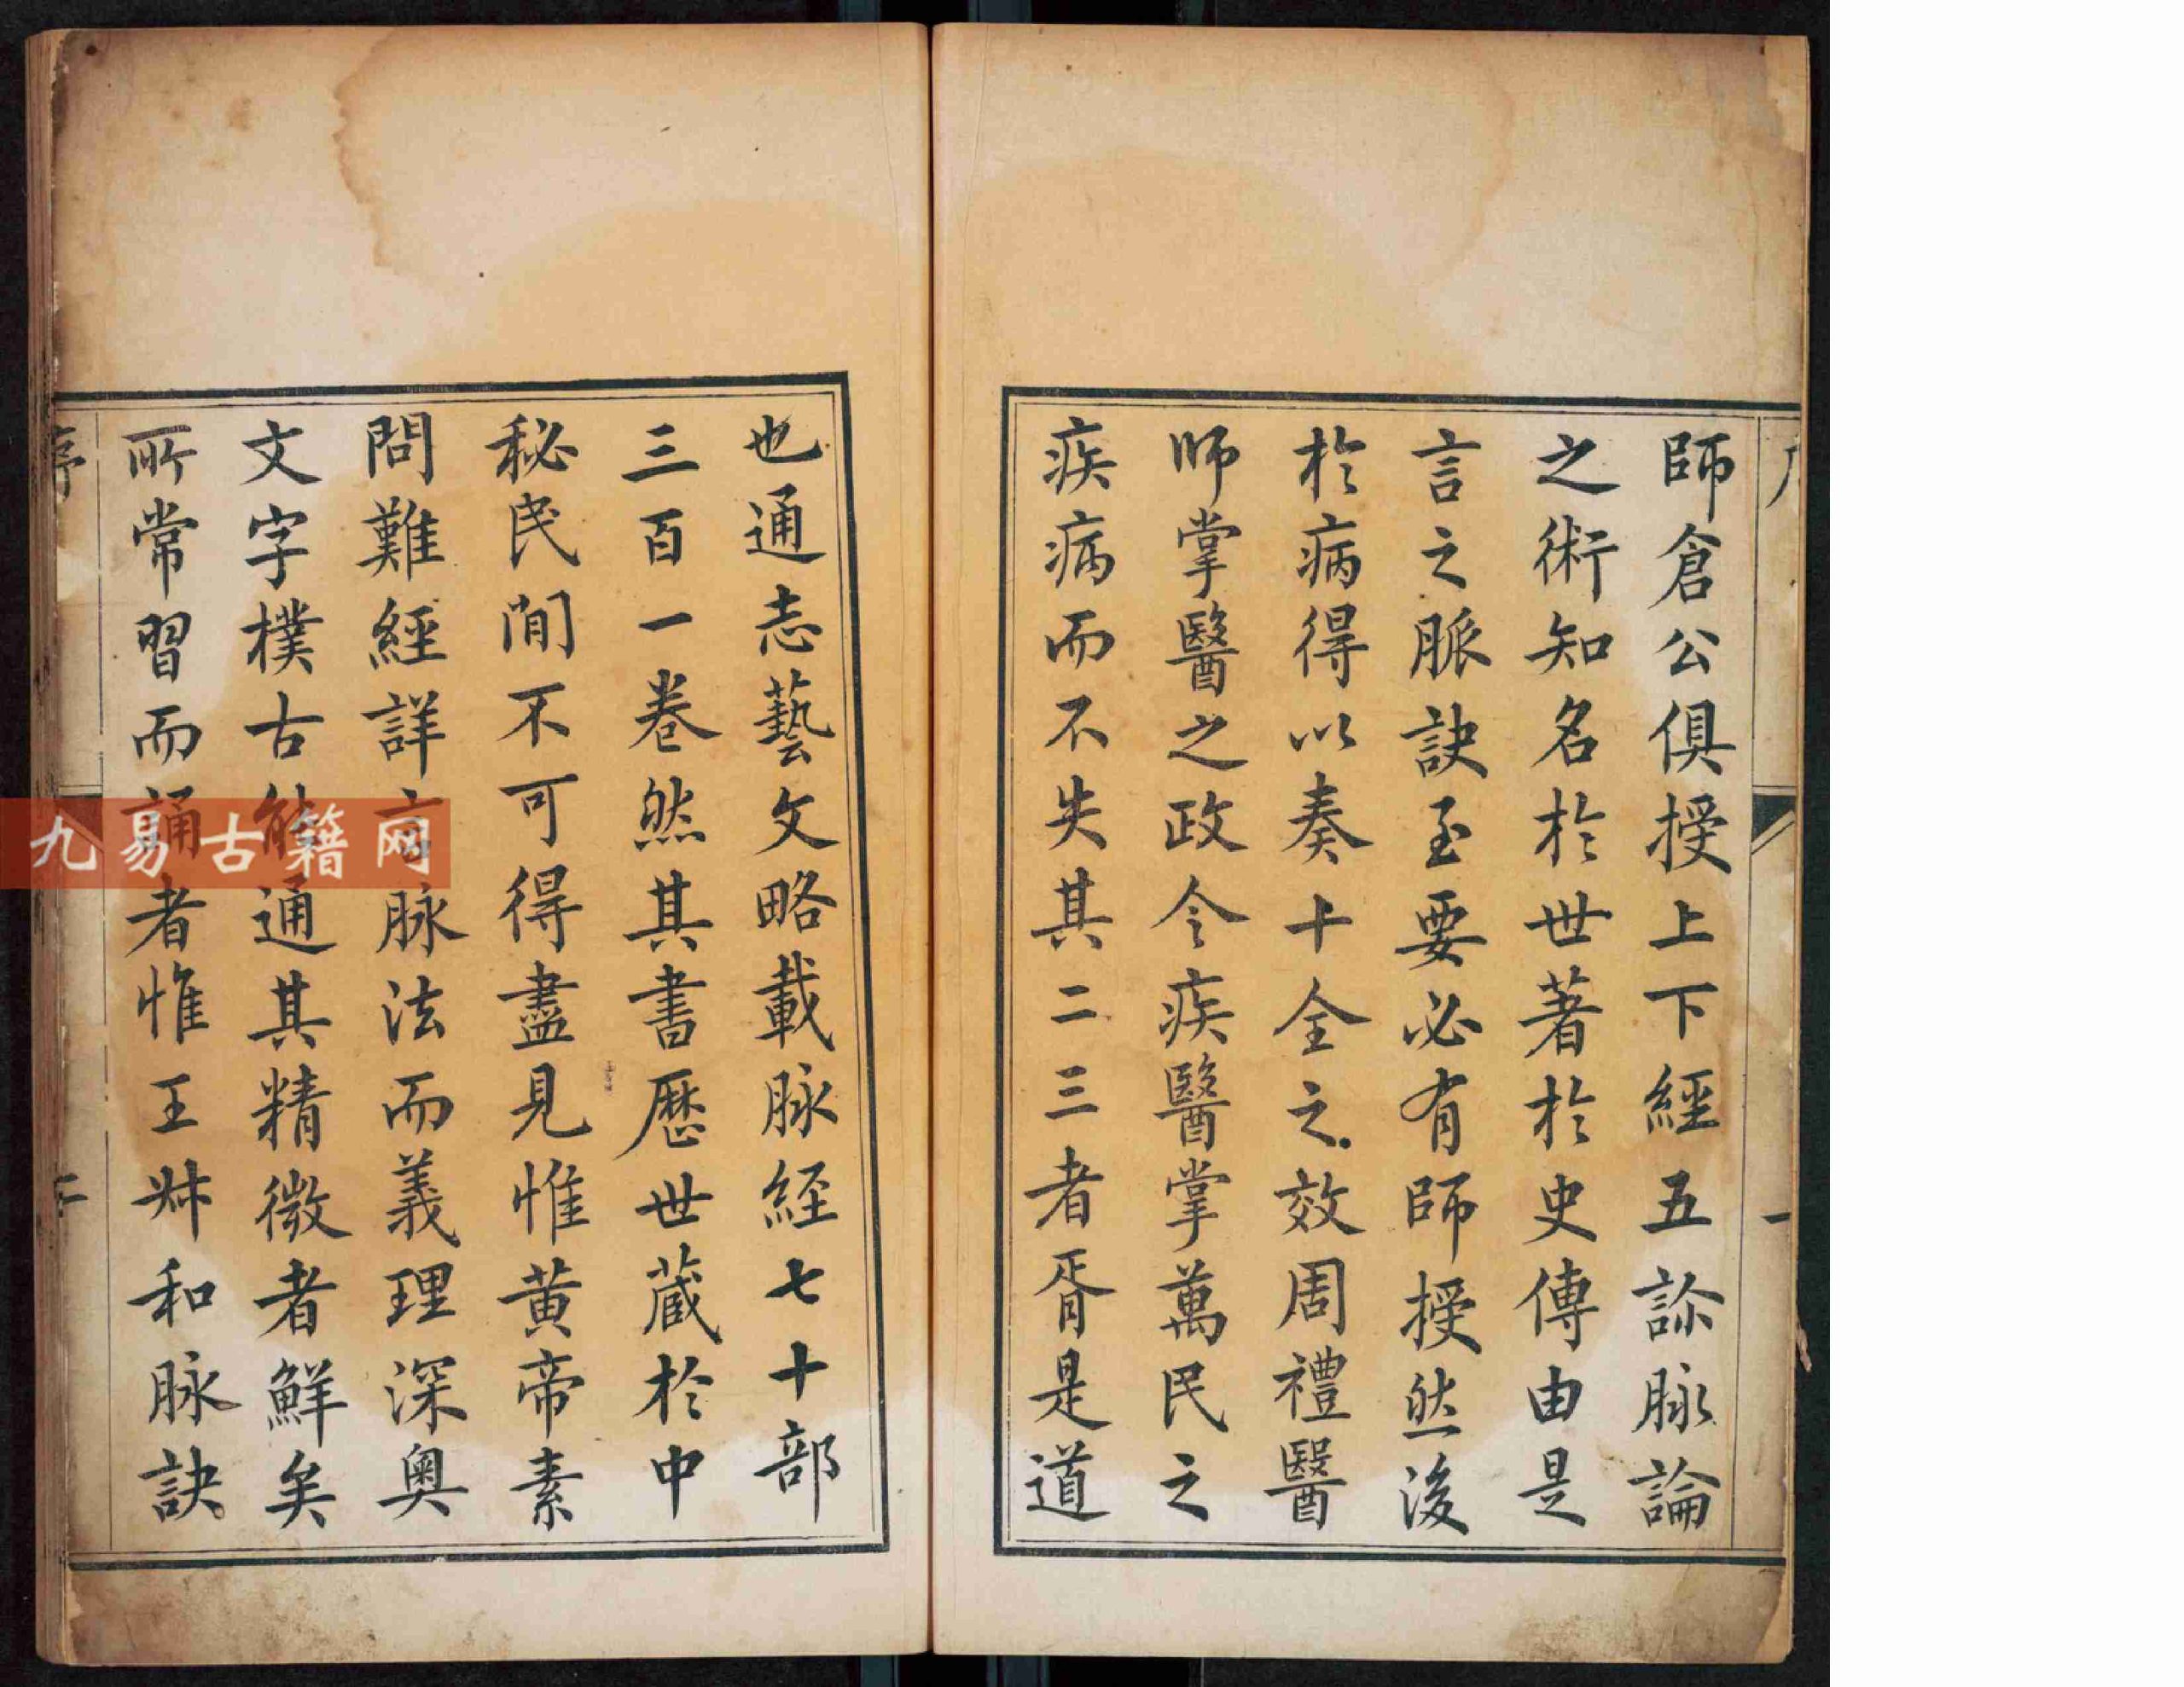 師倉公俱授上下經五診脉論
之術知名於世著於史傳由是
言之脈訣至要必有師授然後
於病得以奏十全之效周禮醫
師掌醫之政令疾醫掌萬民之
疾病而不失其二三者胥是道
也通志藝文略載脉經七十部
三百一卷然其書歷世蔵於中
秘民間不可得盡見惟黄帝素
問難經詳言脉法而義理深奥
文字樸古能通其精微者鮮矣
所常習而誦者惟王叔和脉訣
序
九易古籍网